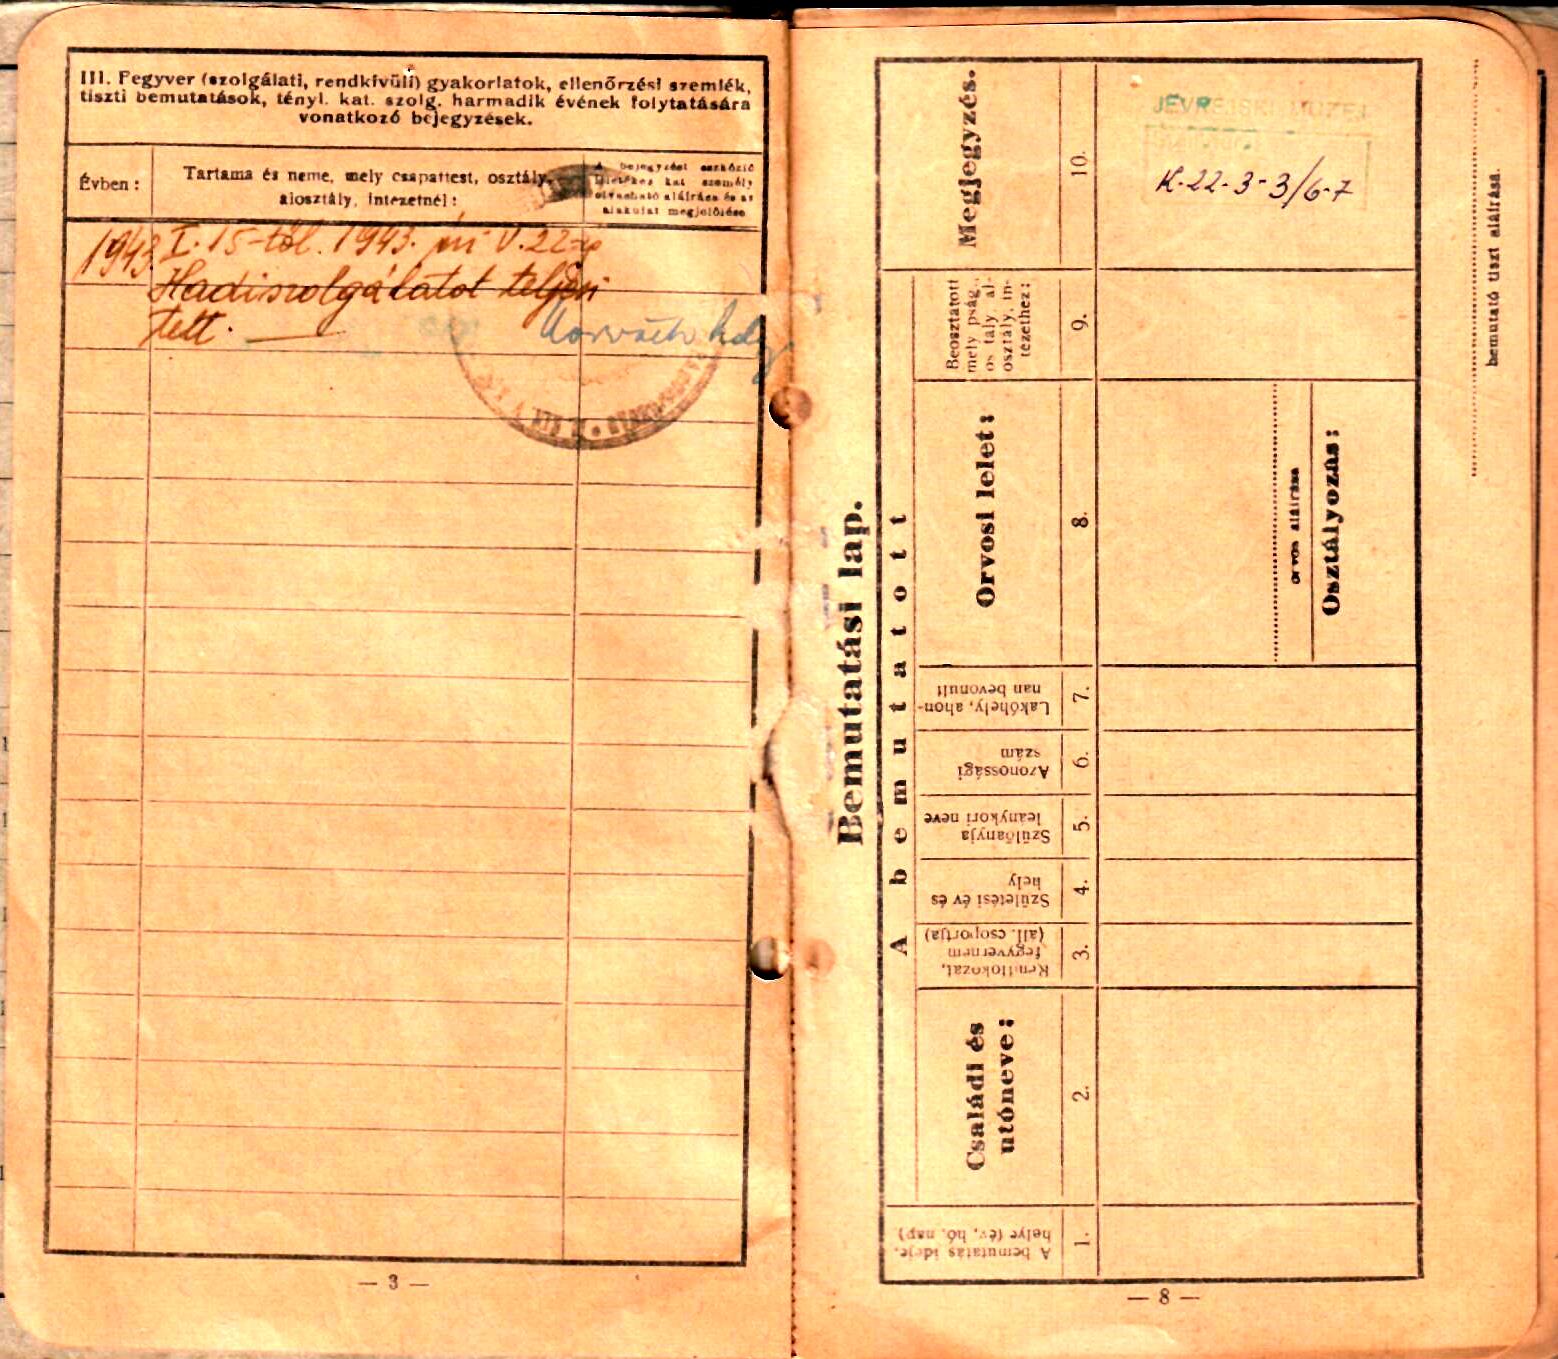 III. Fegyver (szolgálati, rendkívüli) gyakorlatok, ellenőrzési szemlék,
tiszti bemutatások, tényl. kat. szolg. harmadik évének folytatására
vonatkozó bejegyzések.
Évben :
Tartama és neme, mely csapattest, osztály,
alosztály, intezetnél :
A bejegyzést eszközlő
illetékes kat személy
olvasható aláírása és az
alakulat megjelölése
1943. I. 15-től. 1943. V. 22-ig
Hadiszolgálatot teljesi
tett.
Horváth hdgy
— 3 —
Bemutatási lap.
A bemutatott
A bemutatás ideje,
helye (év, hó, nap)
1.
Családi és
utóneve :
2.
Rendfokozat,
fegyvernem
(áll. csoportja)
3.
Születési év és
hely
4.
Szülőanyja
leánykori neve
5.
Azonossági
szám
6.
Lakóhely, ahon-
nan bevonult
7.
Orvosi lelet :
8.
orvos aláírása
Osztályozás :
Beosztatott
mely pság.,
osztály, al-
osztály, in-
tézethez :
9.
Megjegyzés.
10.
JEVREJSKI MUZEJ
K-22-3-3/6-7
bemutató tiszt aláírása.
— 8 —